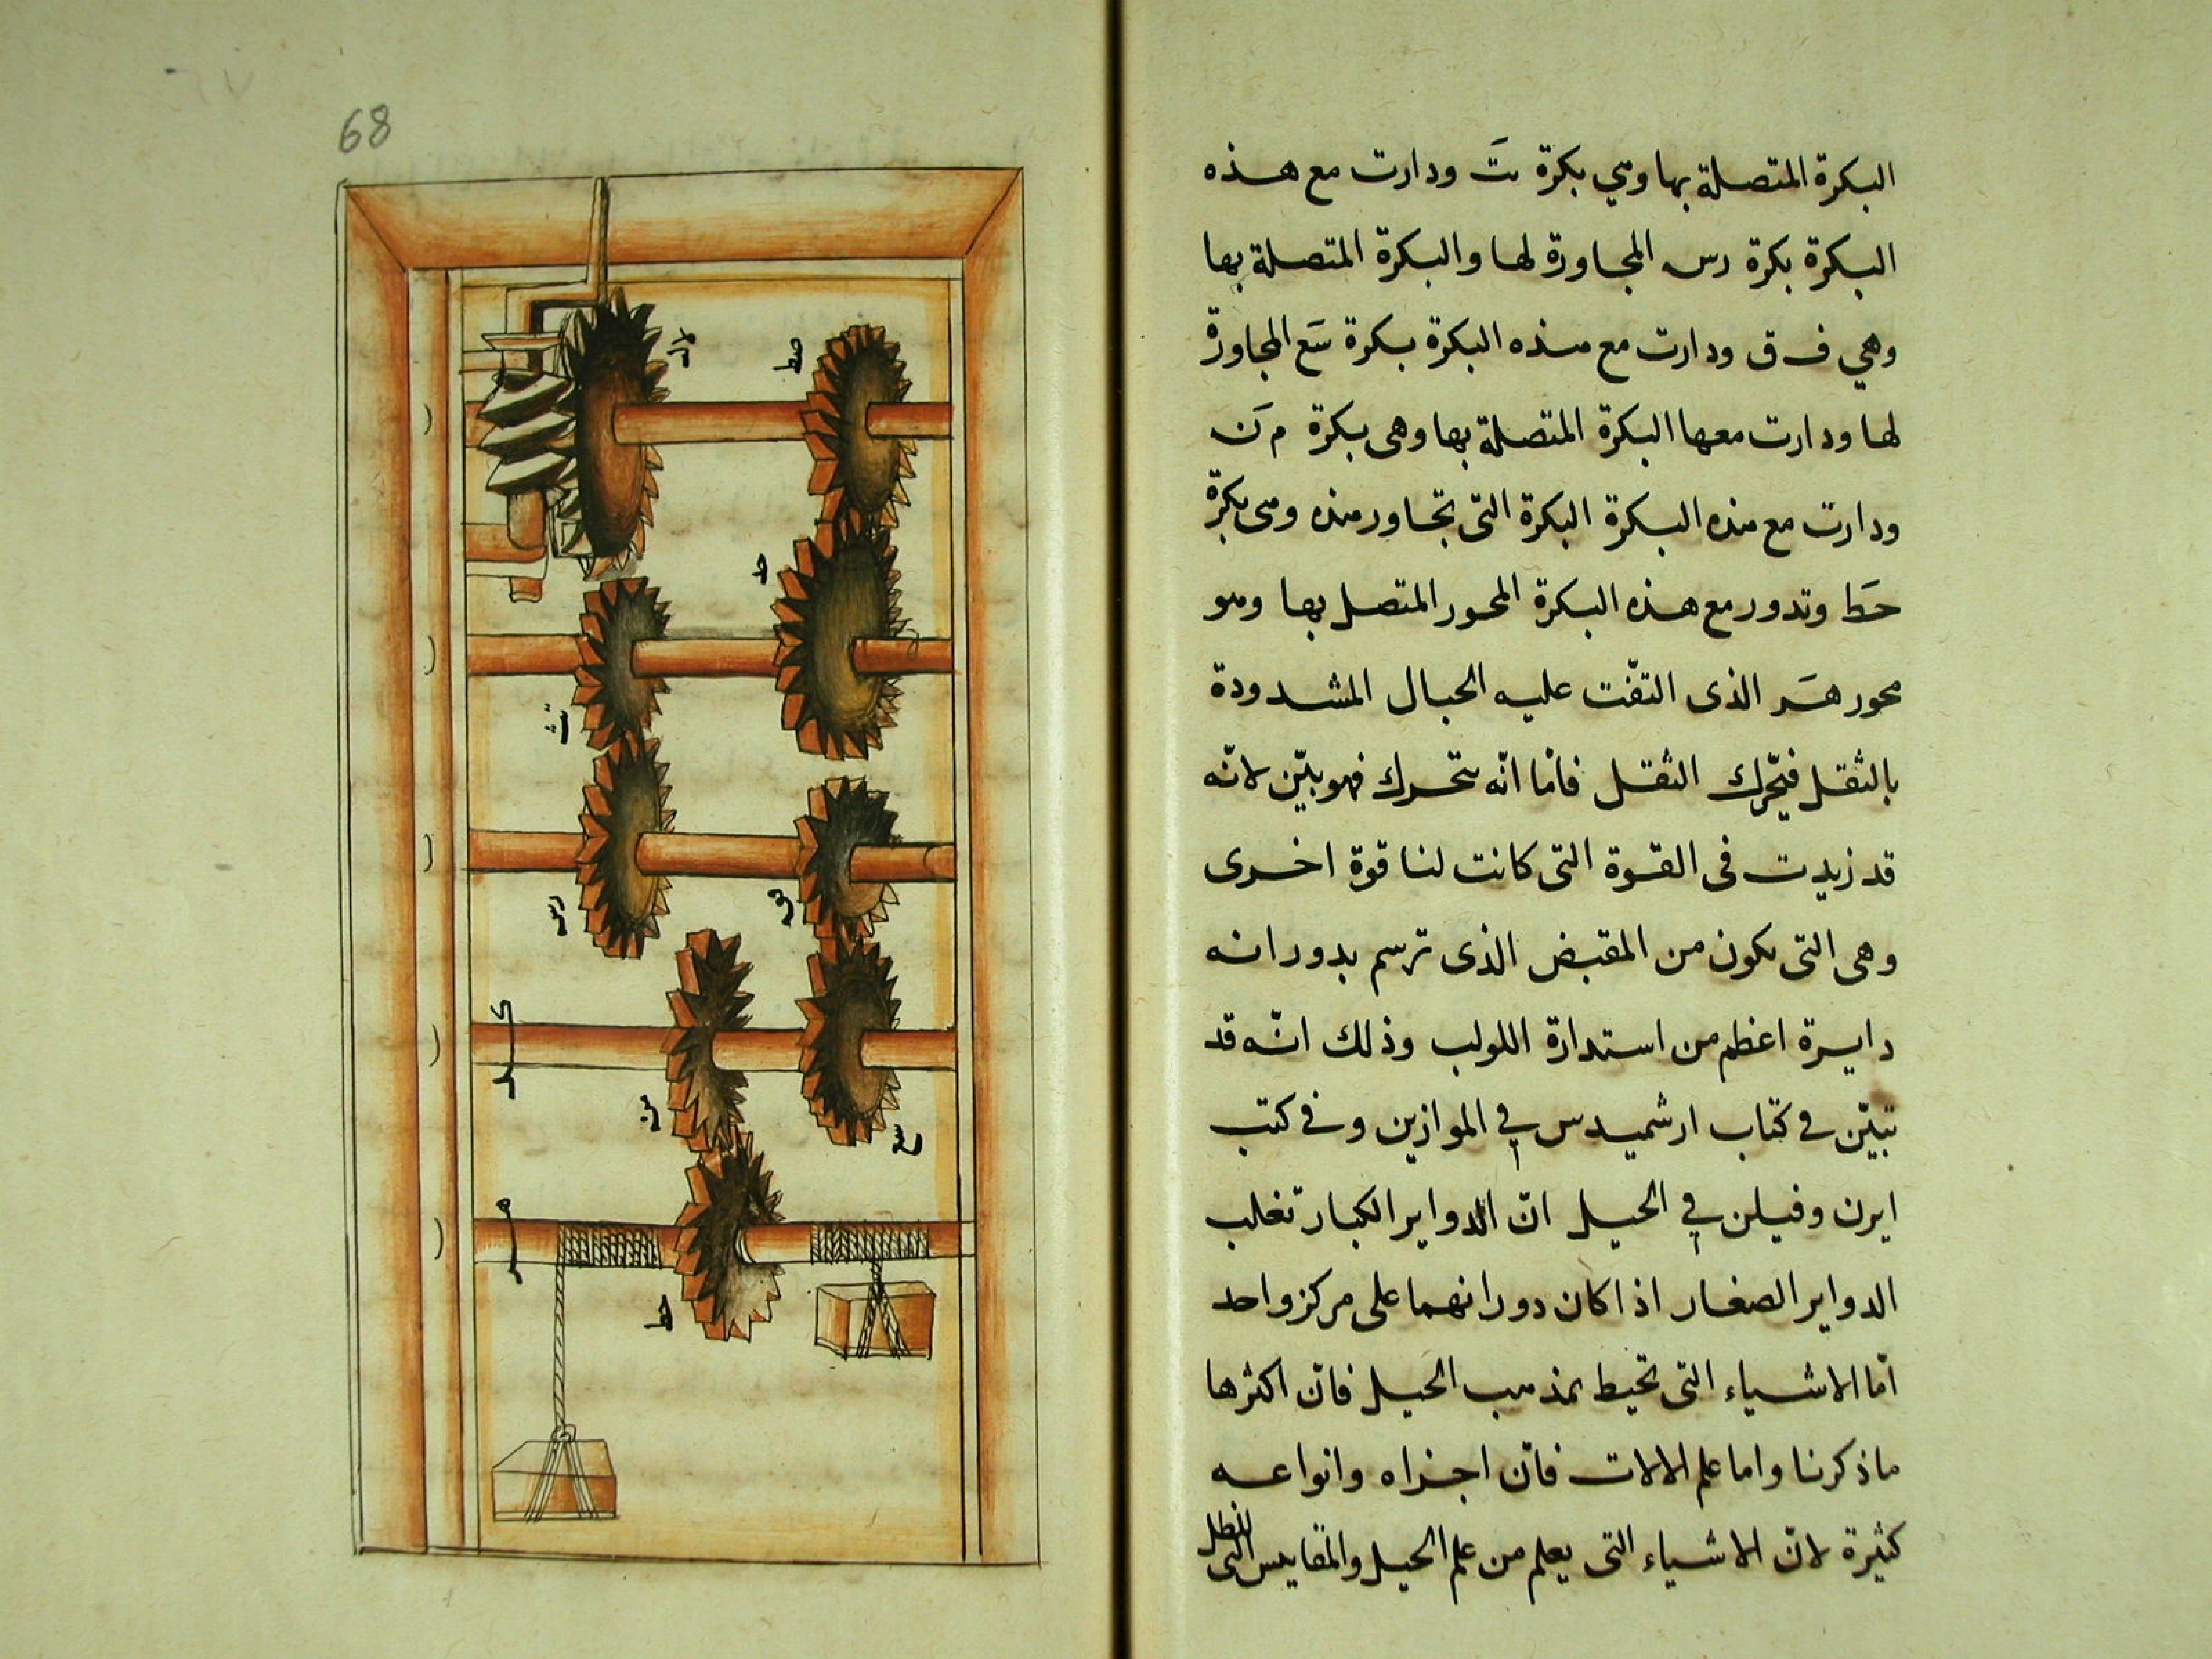 البكرة المتصلة بها وهي بكرة تَ ودارت مع هذه
البكرة بكرة رس المجاورة لها والبكرة المتصلة بها
وهي ف ق ودارت مع هذه البكرة بكرة سَع المجاورة
لها ودارت معها البكرة المتصلة بها وهى بكرة م نَ
ودارت مع هذه البكرة البكرة التى تجاور هذه وهى بكرة
حَط وتدور مع هذه البكرة المحور المتصل بها وهو
محور هَر الذى التفّت عليه الحبال المشدودة
بالثقل فيتحّرك الثقل فامّا انّه يتحرك فهو بيّن لانّه
قد زيدت فى القوة التى كانت لنا قوة اخرى
وهى التى تكون من المقبض الذى ترسم بدورانه
دايرة اعظم من استدارة اللولب وذلك انّه قد
تبيّن في كتاب ارشميدس في الموازين وفي كتب
ايرن وفيلن في الحيل انّ الدواير الكبار تغلب
الدواير الصغار اذا كان دورانهما على مركز واحد
امّا الاشياء التى تحيط بمذهب الحيل فانّ اكثرها
ماذكرنا واما علم الالات فانّ اجزاه وانواعه
كثيرة لانّ الاشياء التى يعلم من علم الحيل والمقاييس التى
للنظر
68
صط
حد
رس
سع
من
حط